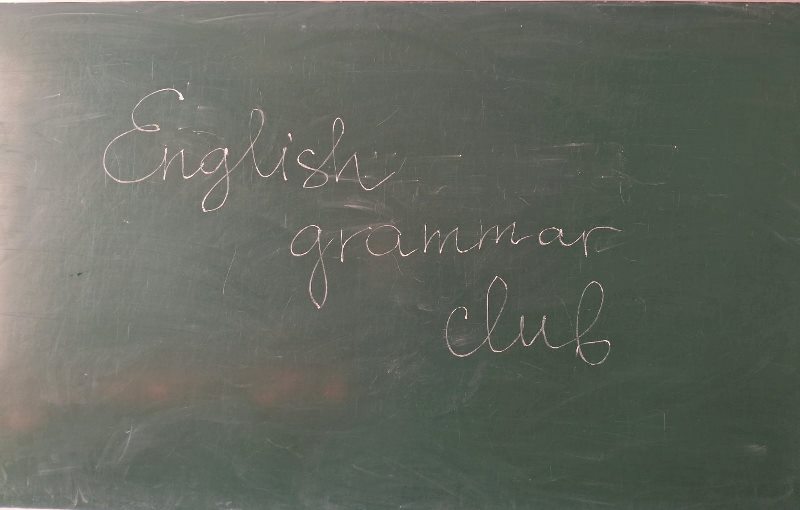 English
grammar
club